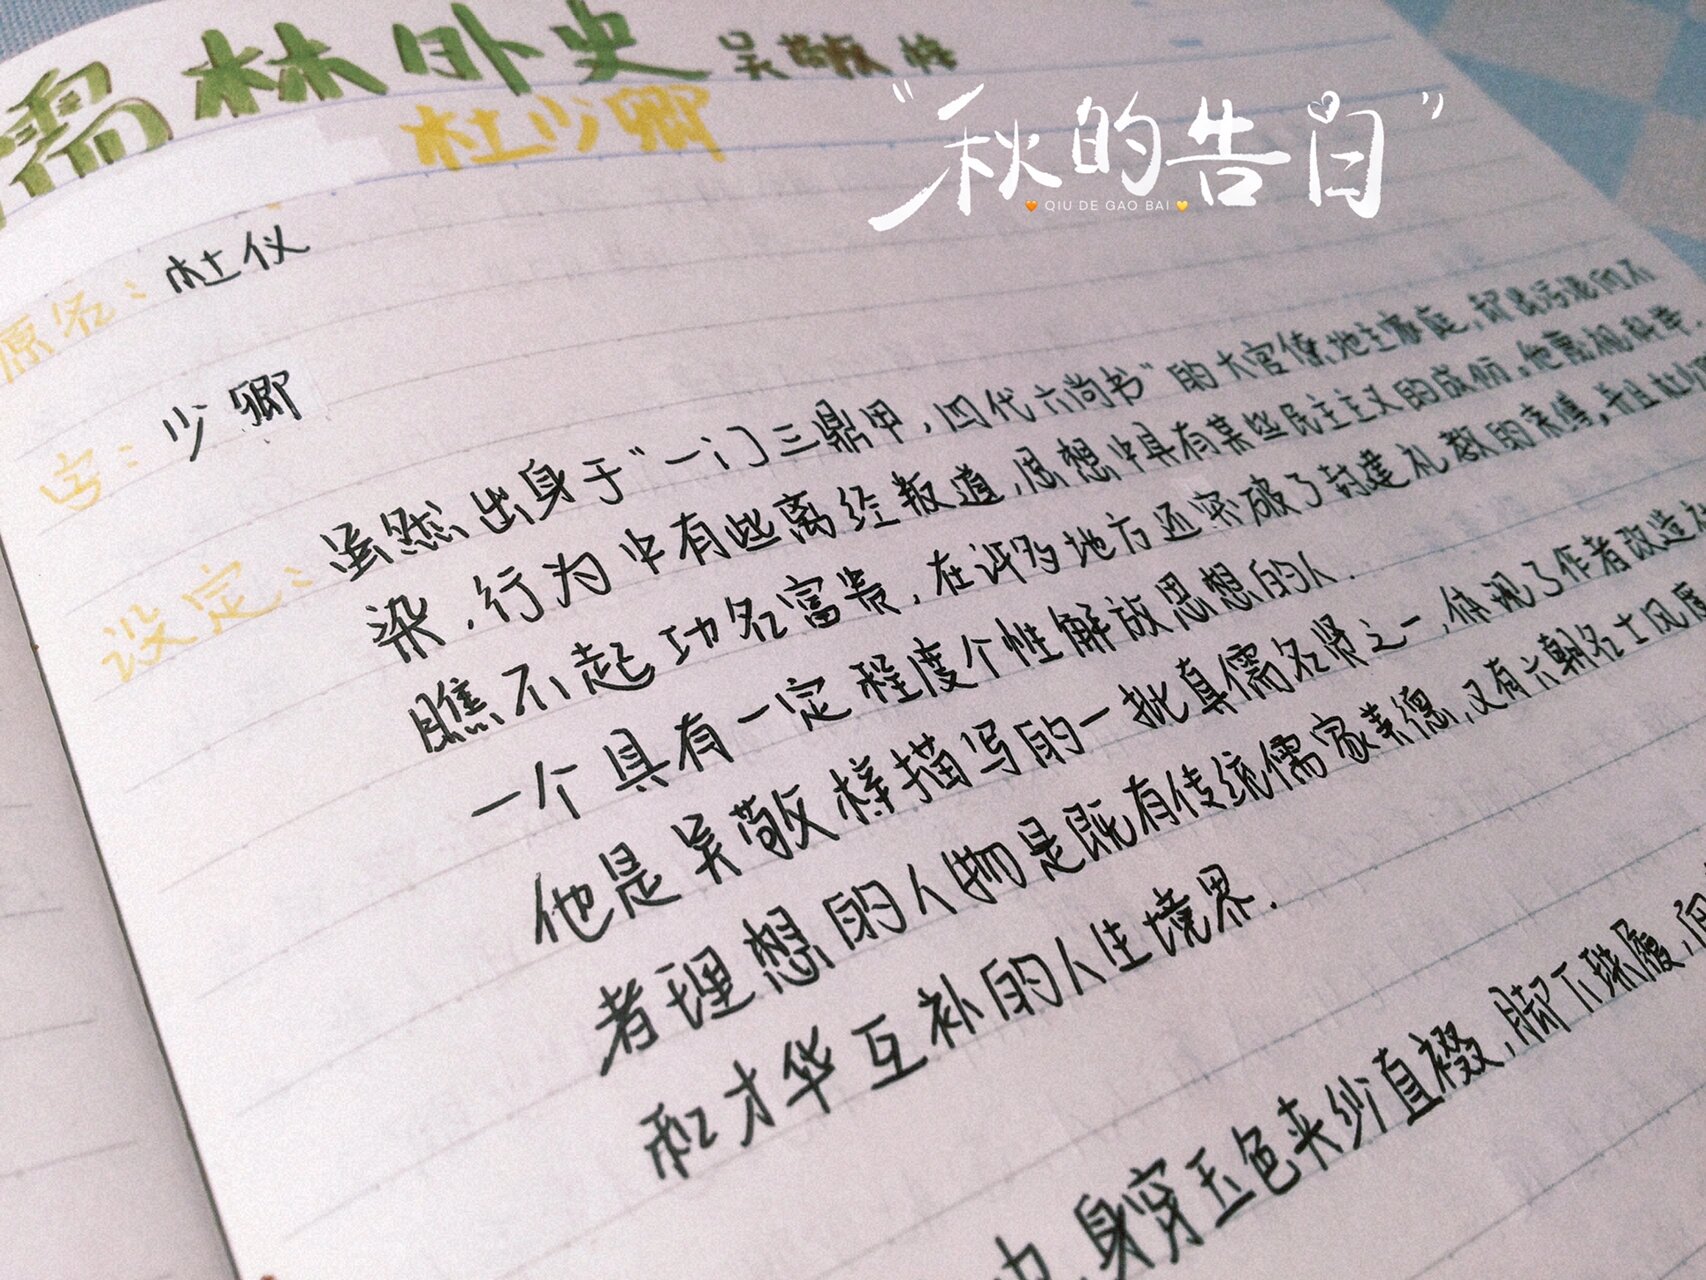 儒林外史 吴敬梓
杜少卿
“秋的告白”
QIU DE GAO BAI
原名：杜仪
字：少卿
设定：虽然出身于“一门三鼎甲，四代六尚书”的大官僚地主家庭，却出污泥而不
染，行为中有些离经叛道，思想中具有某些民主主义的成份，他蔑视科举，
瞧不起功名富贵，在许多地方还突破了封建礼教的束缚，并且
一个具有一定程度个性解放思想的人．
他是吴敬梓描写的一批真儒名贤之一，体现了作者改造
者理想的人物是既有传统儒家美德，又有六朝名士风度
和才华互补的人生境界．
身穿玉色夹纱直裰，脚下珠履，